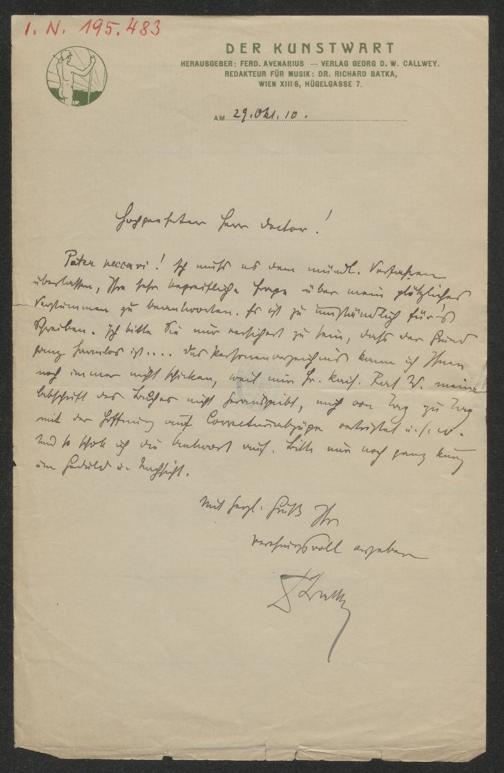 I. N. 195.483
DER KUNSTWART
HERAUSGEBER: FERD. AVENARIUS — VERLAG GEORG D. W. CALLWEY.
REDAKTEUR FÜR MUSIK: DR. RICHARD BATKA,
WIEN XIII/6, HÜGELGASSE 7.
AM 29. Okt. 10.
Hochgeehrter Herr Doctor!
Pater peccavi! Ich muß es dem mündl. Verfahren
überlassen, Ihre sehr begreifliche Frage über mein plötzliches
Verstummen zu beantworten. Es ist zu umständlich für's
Schreiben. Ich bitte Sie nur versichert zu sein, daß der Grund
ganz harmlos ist.... Das Personenverzeichnis kann ich Ihnen
noch immer nicht schicken, weil mir Hr. Kais. Rat W. meine
Abschrift des Buches nicht herausgibt, mich von Tag zu Tag
mit der Hoffnung auf Correcturabzüge vertröstet u.s.w.
Und so schob ich die Antwort auf. Bitte nur noch ganz kurz
um Geduld u. Nachsicht.
Mit herzl. Gruß Ihr
verehrungsvoll ergebener
RBatka